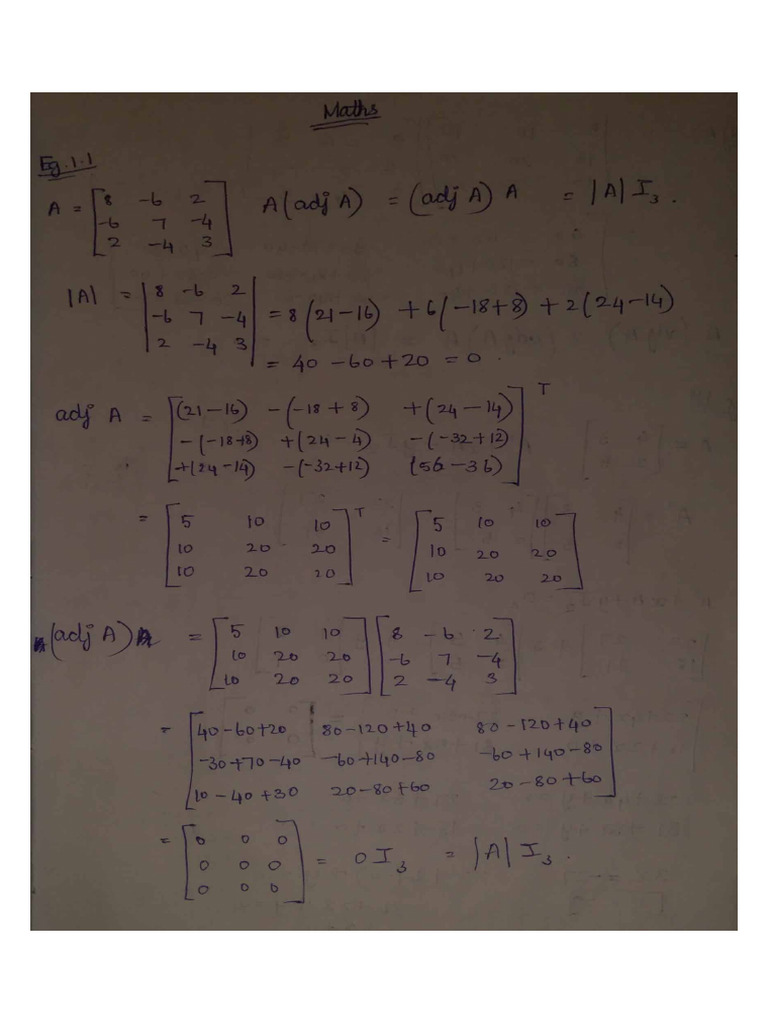 Maths
Eg.1.1
A = [8 -6 2; -6 7 -4; 2 -4 3] A(adj A) = (adj A) A = |A| I₃.
|A| = |8 -6 2; -6 7 -4; 2 -4 3| = 8(21-16) + 6(-18+8) + 2(24-14)
= 40 - 60 + 20 = 0.
adj A = [(21-16) -(-18+8) +(24-14); -(-18+8) +(24-4) -(-32+12); +(24-14) -(-32+12) (56-36)]ᵀ
= [5 10 10; 10 20 20; 10 20 20]ᵀ = [5 10 10; 10 20 20; 10 20 20]
(adj A) A = [5 10 10; 10 20 20; 10 20 20] [8 -6 2; -6 7 -4; 2 -4 3]
= [40-60+20 80-120+40 80-120+40; -30+70-40 -60+140-80 -60+140-80; 10-40+30 20-80+60 20-80+60]
= [0 0 0; 0 0 0; 0 0 0] = 0 I₃ = |A| I₃.